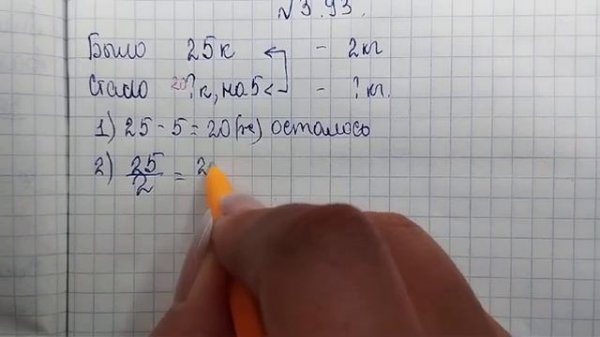 №3.93.
Было 25к - 2кг
Стало 20?к, на 5< - ?кг.
1) 25-5=20(к) осталось
2) 25/2 = 2